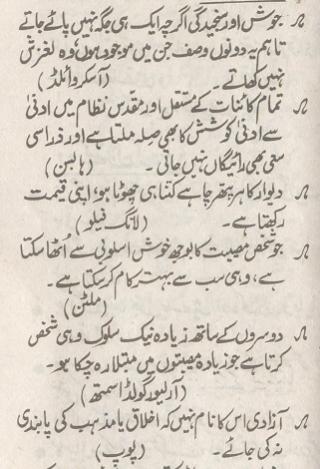 جوش اور سنجیدگی اگرچہ ایک ہی جگہ نہیں پائے جاتے
تاہم یہ دونوں وصف جن میں موجود ہوں وہ لغزش
نہیں کھاتے۔ (آسکر وائلڈ)
تمام کائنات کے مستقل اور مقدس نظام میں ادنیٰ
سے ادنیٰ کوشش کا بھی صلہ ملتا ہے اور ذرا سی
سعی بھی رائیگاں نہیں جاتی۔ (ہالسن)
دیوار کا ہر پتھر چاہے کتنا ہی چھوٹا ہو، اپنی قیمت
رکھتا ہے۔ (لانگ فیلو)
جو شخص مصیبت کا بوجھ خوش اسلوبی سے اُٹھا سکتا
ہے، وہی سب سے بہتر کام کر سکتا ہے۔
(ملٹن)
دوسروں کے ساتھ زیادہ نیک سلوک وہی شخص
کرتا ہے جو زیادہ مصیبتوں میں مبتلا رہ چکا ہو۔
(آرلیور گولڈ اسمتھ)
آزادی اس کا نام نہیں کہ اخلاق یا مذہب کی پابندی
نہ کی جائے۔ (پوپ)